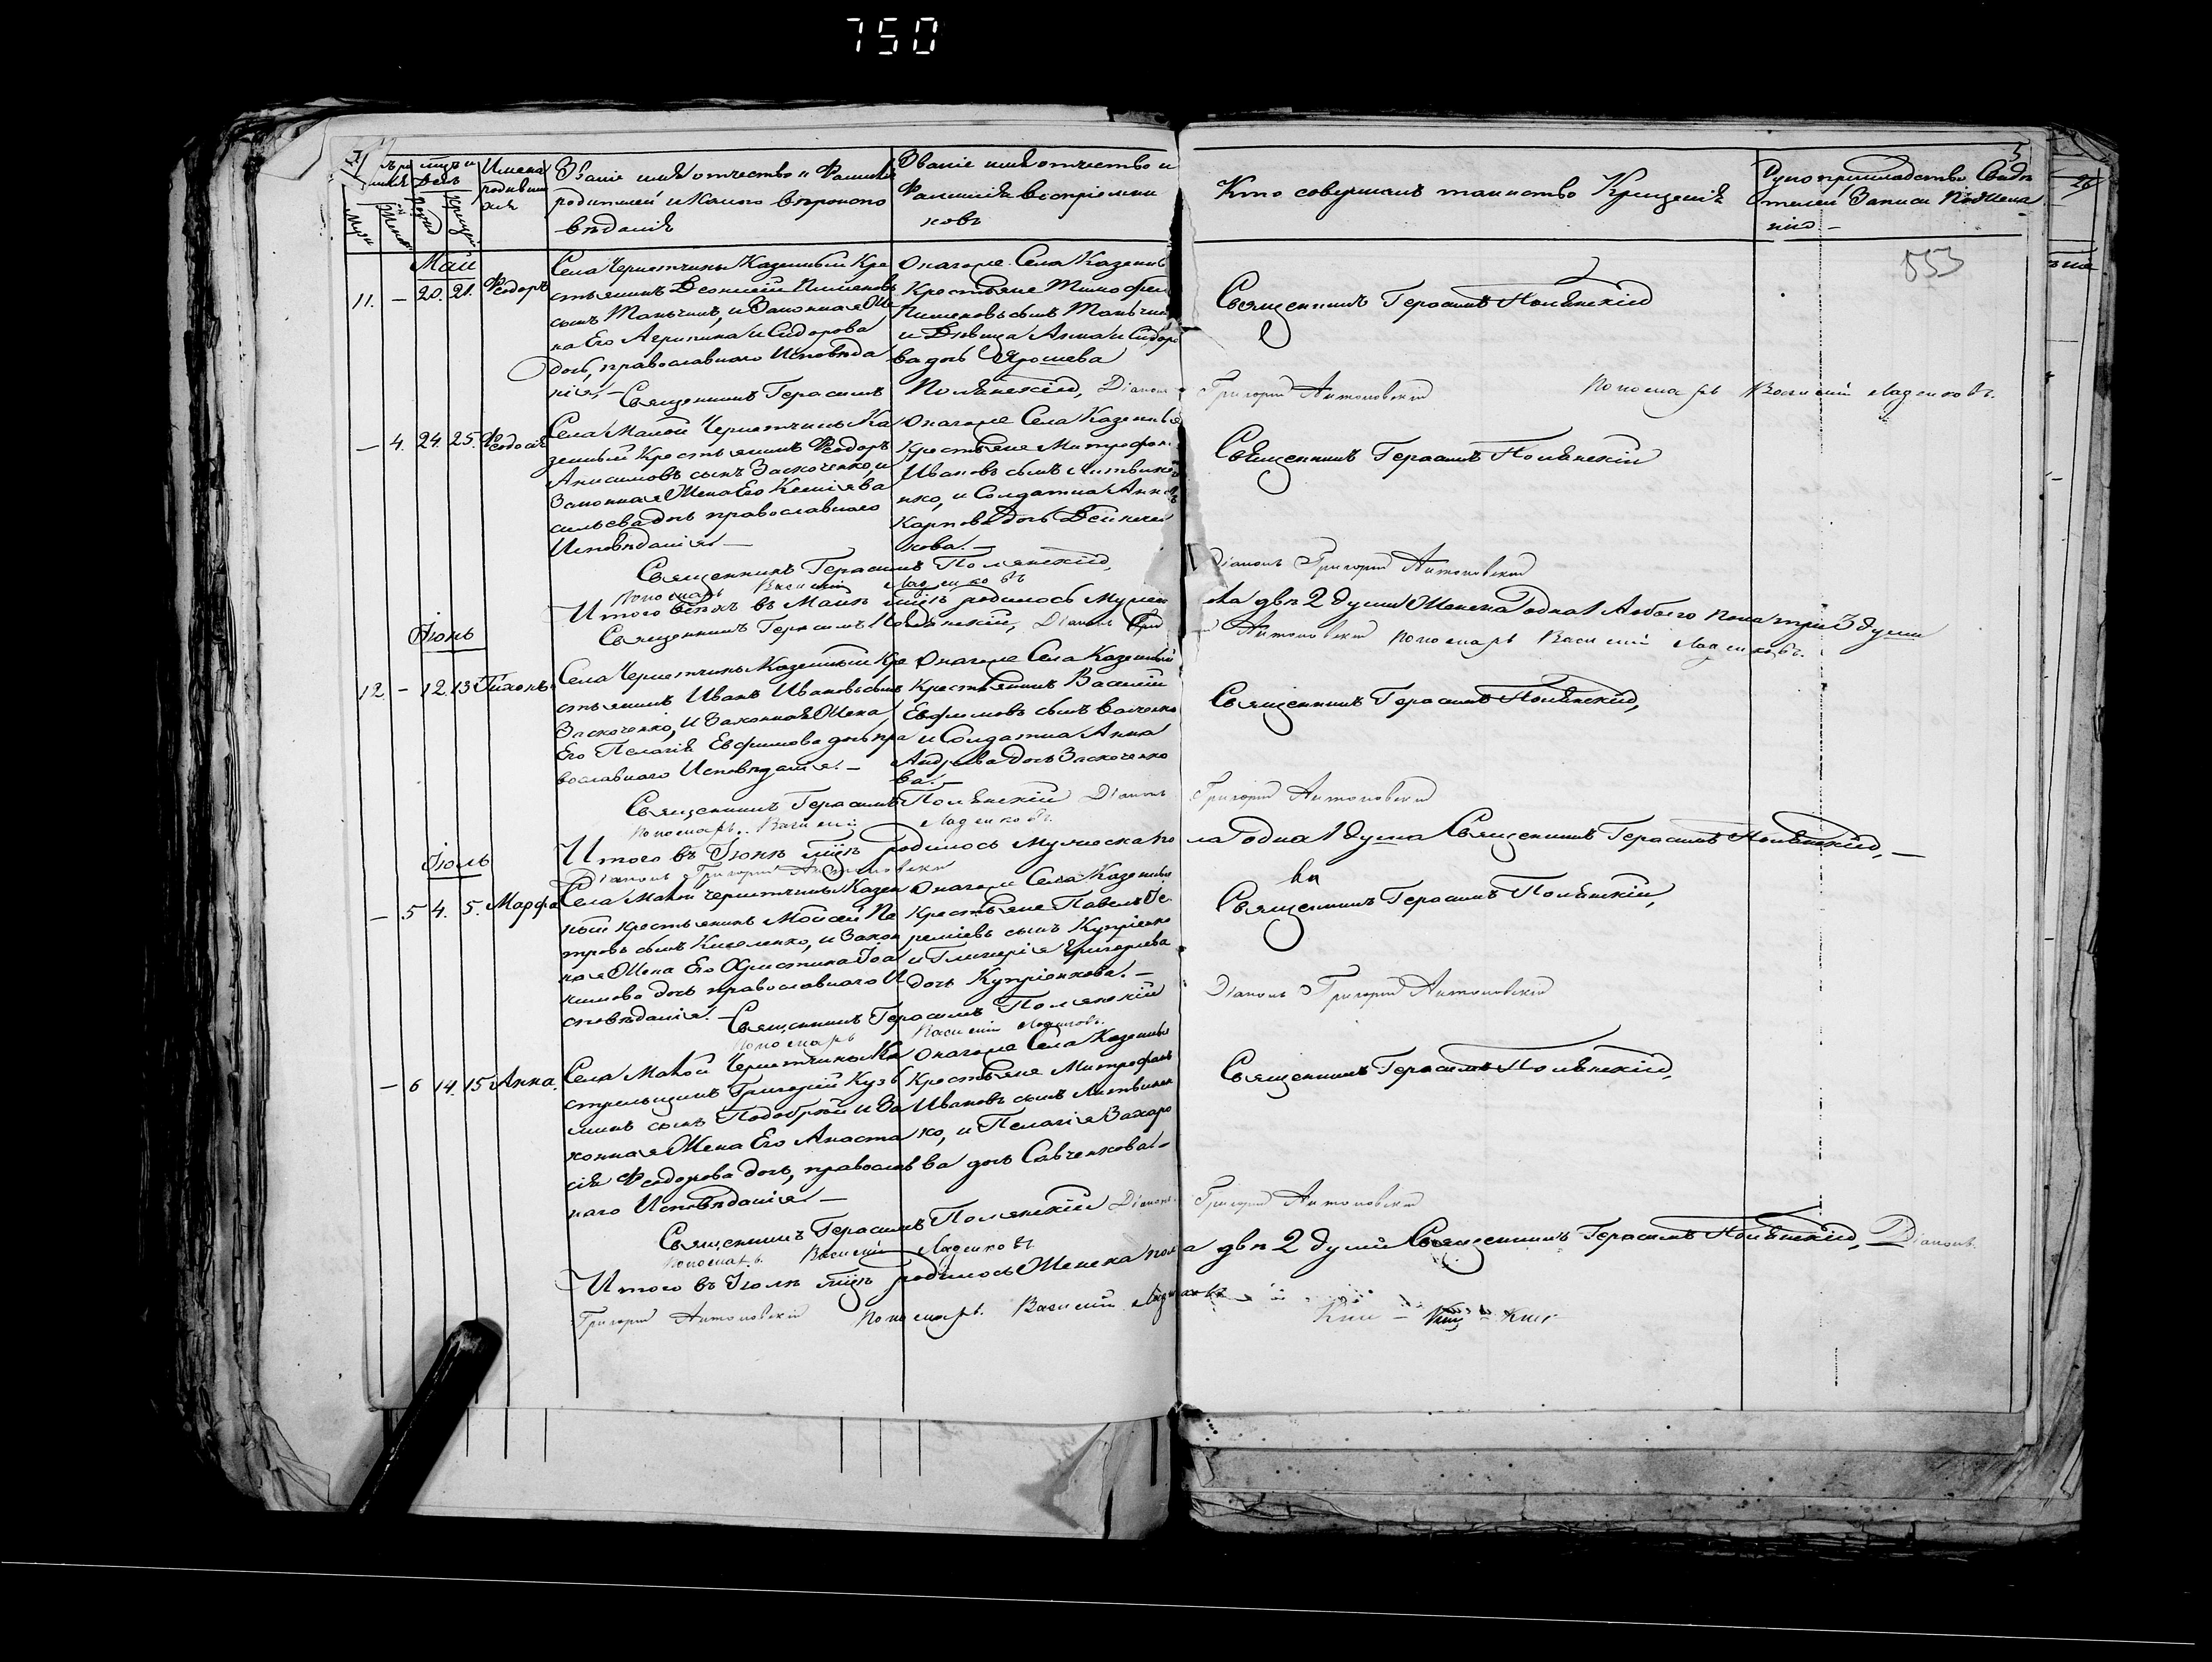 750
Имена родившихся
Званіе имя отчество и Фамилія родителей и какого вѣроисповѣданія
Званіе имя отчество и Фамилія воспріемниковъ
Кто совершалъ таинство Крещенія
5
26
553
Май
11. – 20. 21. Ѳеодоръ
Села Черпетчины Казенный Кре
стьянинъ Леонтій Пименовъ
сынъ Таньчинъ, и Законная Же
на Его Агрипина Исидорова
дочь, православнаго Исповѣда
нія. –
Онагоже Села Казенные
Крестьяне Тимофей
Пименовъ сынъ
и Дѣвица Анна Исидоро
ва дочь Ярошева
Священникъ Герасимъ Полянскій
Священникъ Герасимъ Полянскій, Діаконъ Григорій Антоновскій Пономарь Василій Ладенковъ.
– 4. 24. 25. Ѳеодосія
Села Малой Черпетчины Ка
зенный Крестьянинъ Ѳеодоръ
Анисимовъ сынъ Заскоченко, и
Законная Жена Его Ксенія Ва
сильева дочь православнаго
Исповѣданія. –
Онагоже Села Казенные
Крестьяне Митрофанъ
Ивановъ сынъ Литвине
нко, и Солдатка Анна
Карпова дочь
кова. –
Священникъ Герасимъ Полянскій
Священникъ Герасимъ Полянскій, Діаконъ Григорій Антоновскій
Пономарь Василій Ладенковъ
Итого въ Маіи мцѣ родилось Мужеска двѣ 2 души Женска одна 1 Обоего пола три 3 души
Священникъ Герасимъ Полянскій, Діаконъ Григорій Антоновскій Пономарь Василій Ладенковъ.
Іюнь
12 – 12. 13 Тихонъ
Села Черпетчины Казенный Кре
стьянинъ Иванъ Ивановъ сынъ
Заскоченко, и Законная Жена
Его Пелагія Евфимова дочь пра
вославнаго Исповѣданія. –
Онагоже Села Казенный
Крестьянинъ Василій
Евфимовъ сынъ
и Солдатка Анна
Андреева дочь Заскоченко
ва. –
Священникъ Герасимъ Полянскій,
Священникъ Герасимъ Полянскій Діаконъ Григорій Антоновскій
Пономарь Василій Ладенковъ.
Итого въ Іюнѣ мцѣ родилось мужеска пола одна 1 душа Священникъ Герасимъ Полянскій, –
Діаконъ Григорій Антоновскій
Іюль
– 5 4. 5. Марфа
Села Малой Черпетчины Казен
ный крестьянинъ Моисей Пе
тровъ сынъ Киселенко, и Закон
ная Жена Его Христина Іоа
кимова дочь православнаго И
сповѣданія. –
Онагоже Села Казенные
Крестьяне Павелъ Іе
реміевъ сынъ Купріенко
и Гликерія Григорьева
дочь Купріенкова. –
Священникъ Герасимъ Полянскій,
Священникъ Герасимъ Полянскій Діаконъ Григорій Антоновскій
Пономарь Василій Ладенковъ.
– 6 14. 15 Анна.
Села Малой Черпетчины Ка
стрельщикъ Григорій Кузь
минъ сынъ Подобрей и За
конная Жена Его Анаста
сія Ѳеодорова дочь, православ
наго Исповѣданія. –
Онагоже Села Казенные
Крестьяне Митрофанъ
Ивановъ сынъ Литвинен
ко, и Пелагія Захаро
ва дочь Савченкова. –
Священникъ Герасимъ Полянскій,
Священникъ Герасимъ Полянскій Діаконъ Григорій Антоновскій
Пономарь Василій Ладенковъ
Итого въ Іюлѣ мцѣ родилось Женска пола двѣ 2 души Священникъ Герасимъ Полянскій, Діаконъ
Григорій Антоновскій Пономарь Василій Ладенковъ